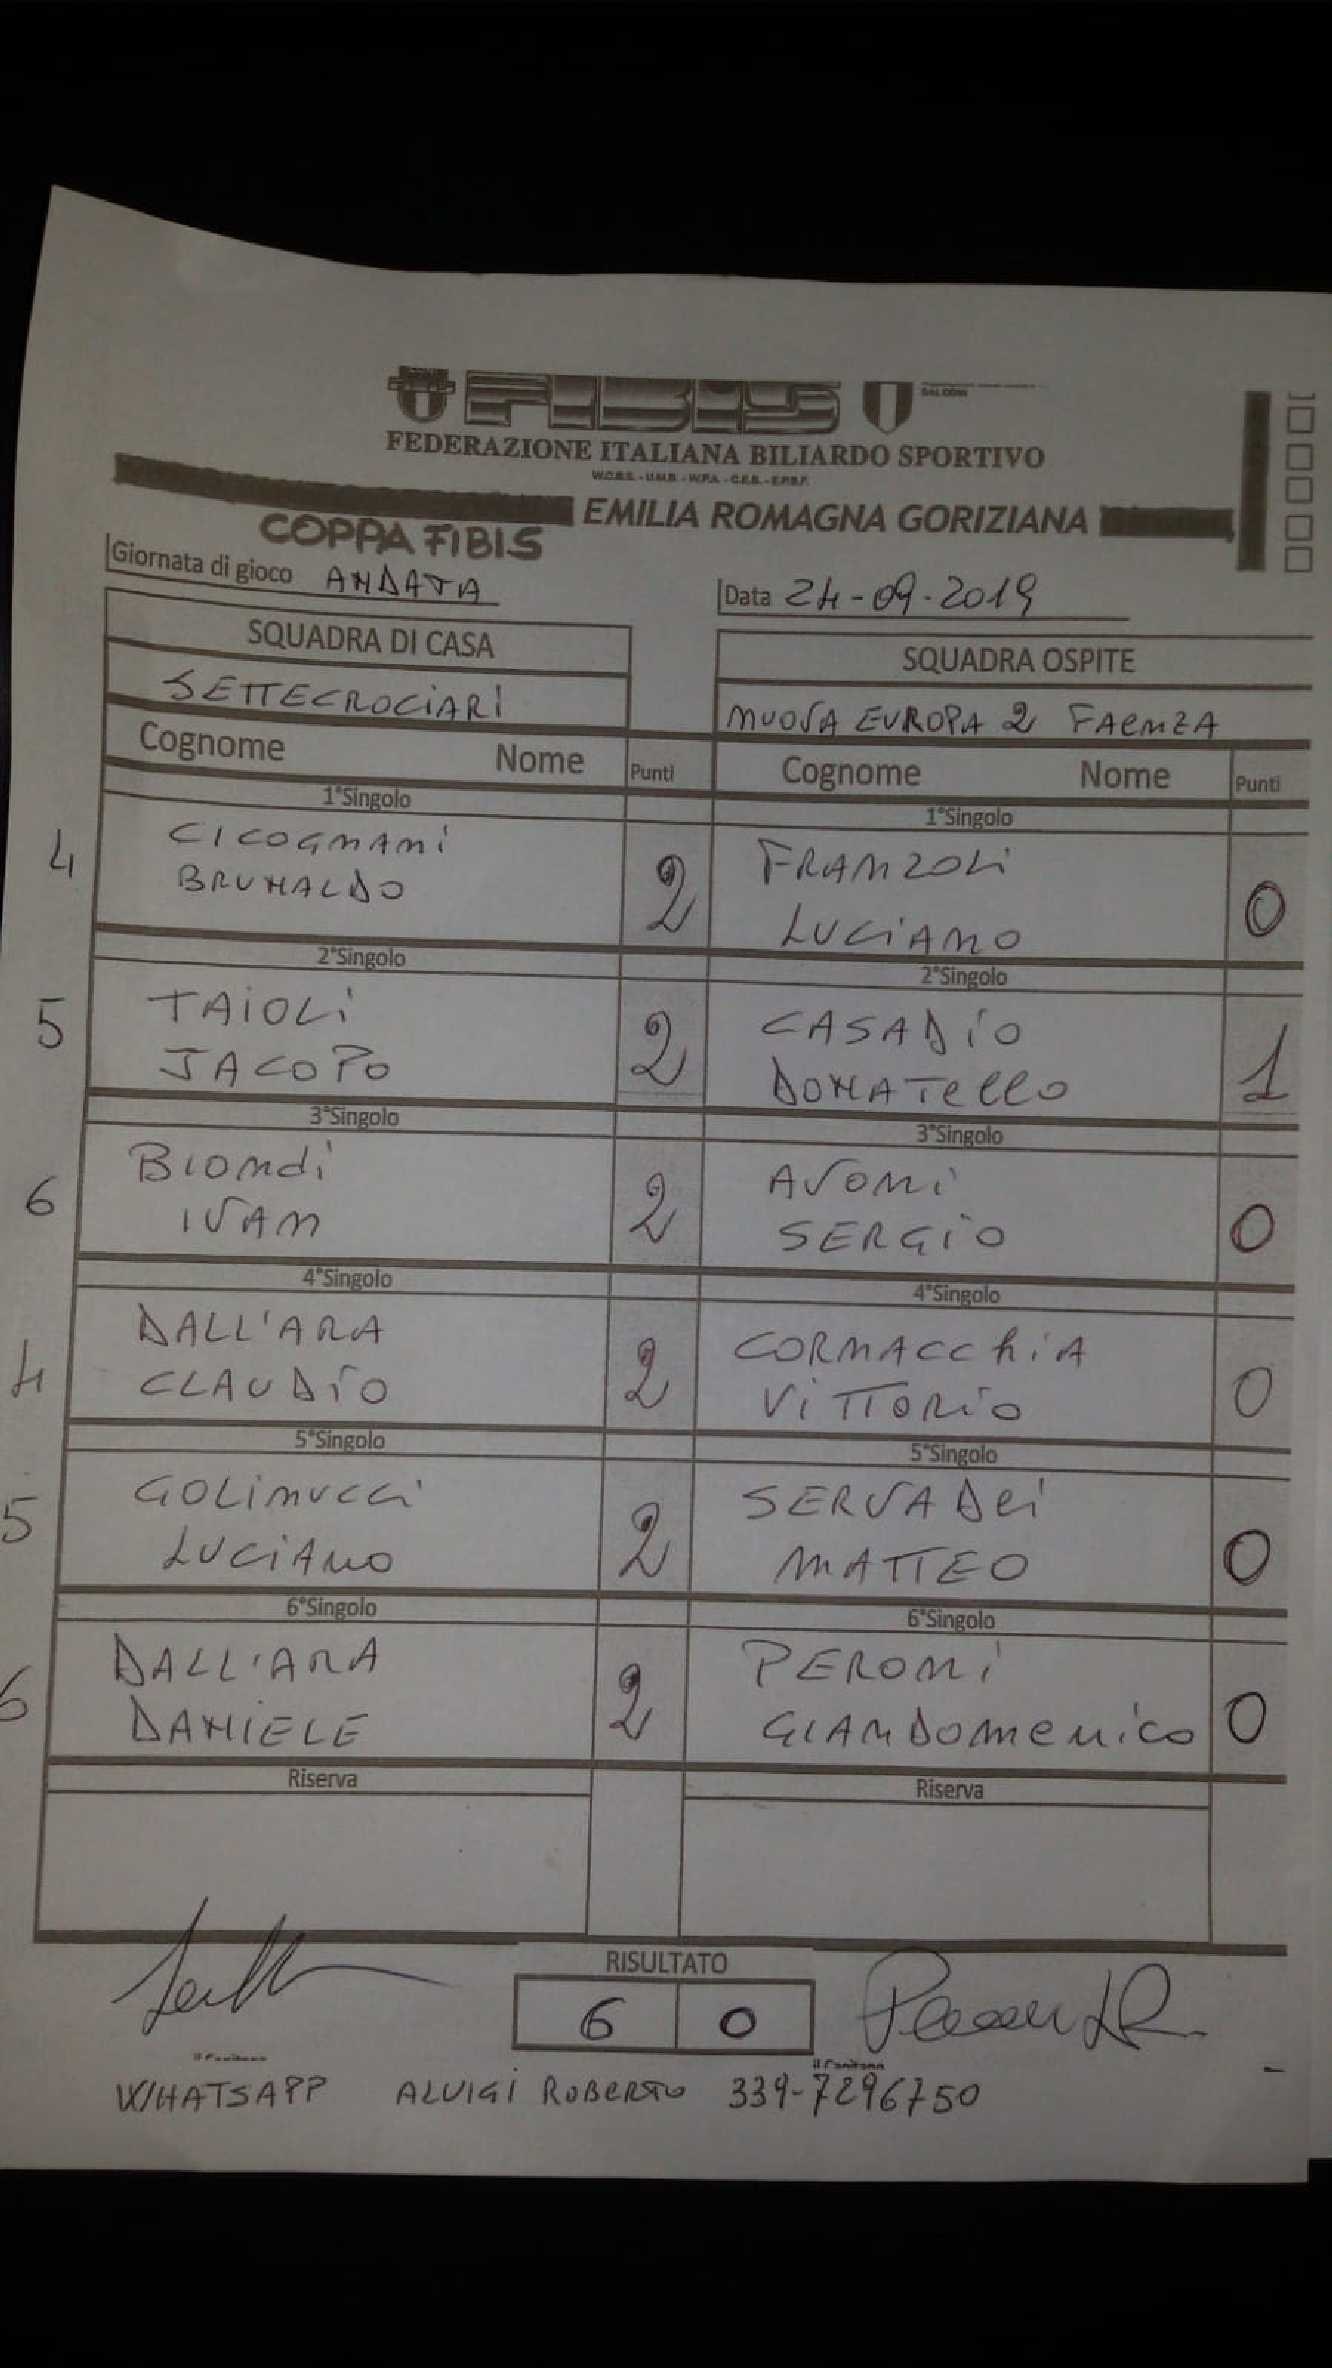 FIBIS
FEDERAZIONE ITALIANA BILIARDO SPORTIVO
W.C.B.S. - U.M.B. - W.P.A. - C.E.B. - E.P.B.F.
EMILIA ROMAGNA GORIZIANA
COPPA FIBIS
Giornata di gioco ANDATA
Data 24-09-2019
SQUADRA DI CASA SQUADRA OSPITE
SETTECROCIARI NUOVA EUROPA 2 FAENZA
Cognome Nome Punti Cognome Nome Punti
1°Singolo 1°Singolo
4 CICOGNANI 2 FRANZOLI 0
BRUNALDO LUCIANO
2°Singolo 2°Singolo
5 TAIOLI 2 CASADIO 1
JACOPO DONATELLO
3°Singolo 3°Singolo
6 BIONDI 2 AVONI 0
IVAN SERGIO
4°Singolo 4°Singolo
4 DALL'ARA 2 CORNACCHIA 0
CLAUDIO VITTORIO
5°Singolo 5°Singolo
5 GOLINUCCI 2 SERVADEI 0
LUCIANO MATTEO
6°Singolo 6°Singolo
6 DALL'ARA 2 PERONI 0
DANIELE GIANDOMENICO
Riserva Riserva
RISULTATO
6 0
Il Capitano Il Capitano
WHATSAPP ALUIGI ROBERTO 339-7296750